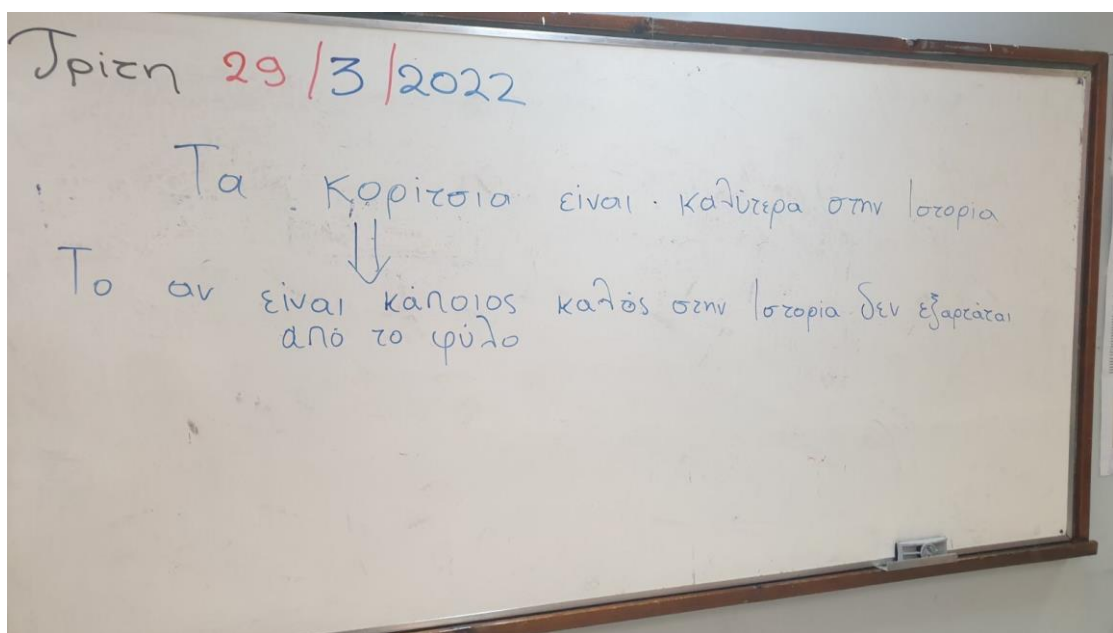 Τρίτη 29/3/2022
Τα κορίτσια είναι καλύτερα στην Ιστορία
Το αν είναι κάποιος καλός στην Ιστορία δεν εξαρτάται
από το φύλο